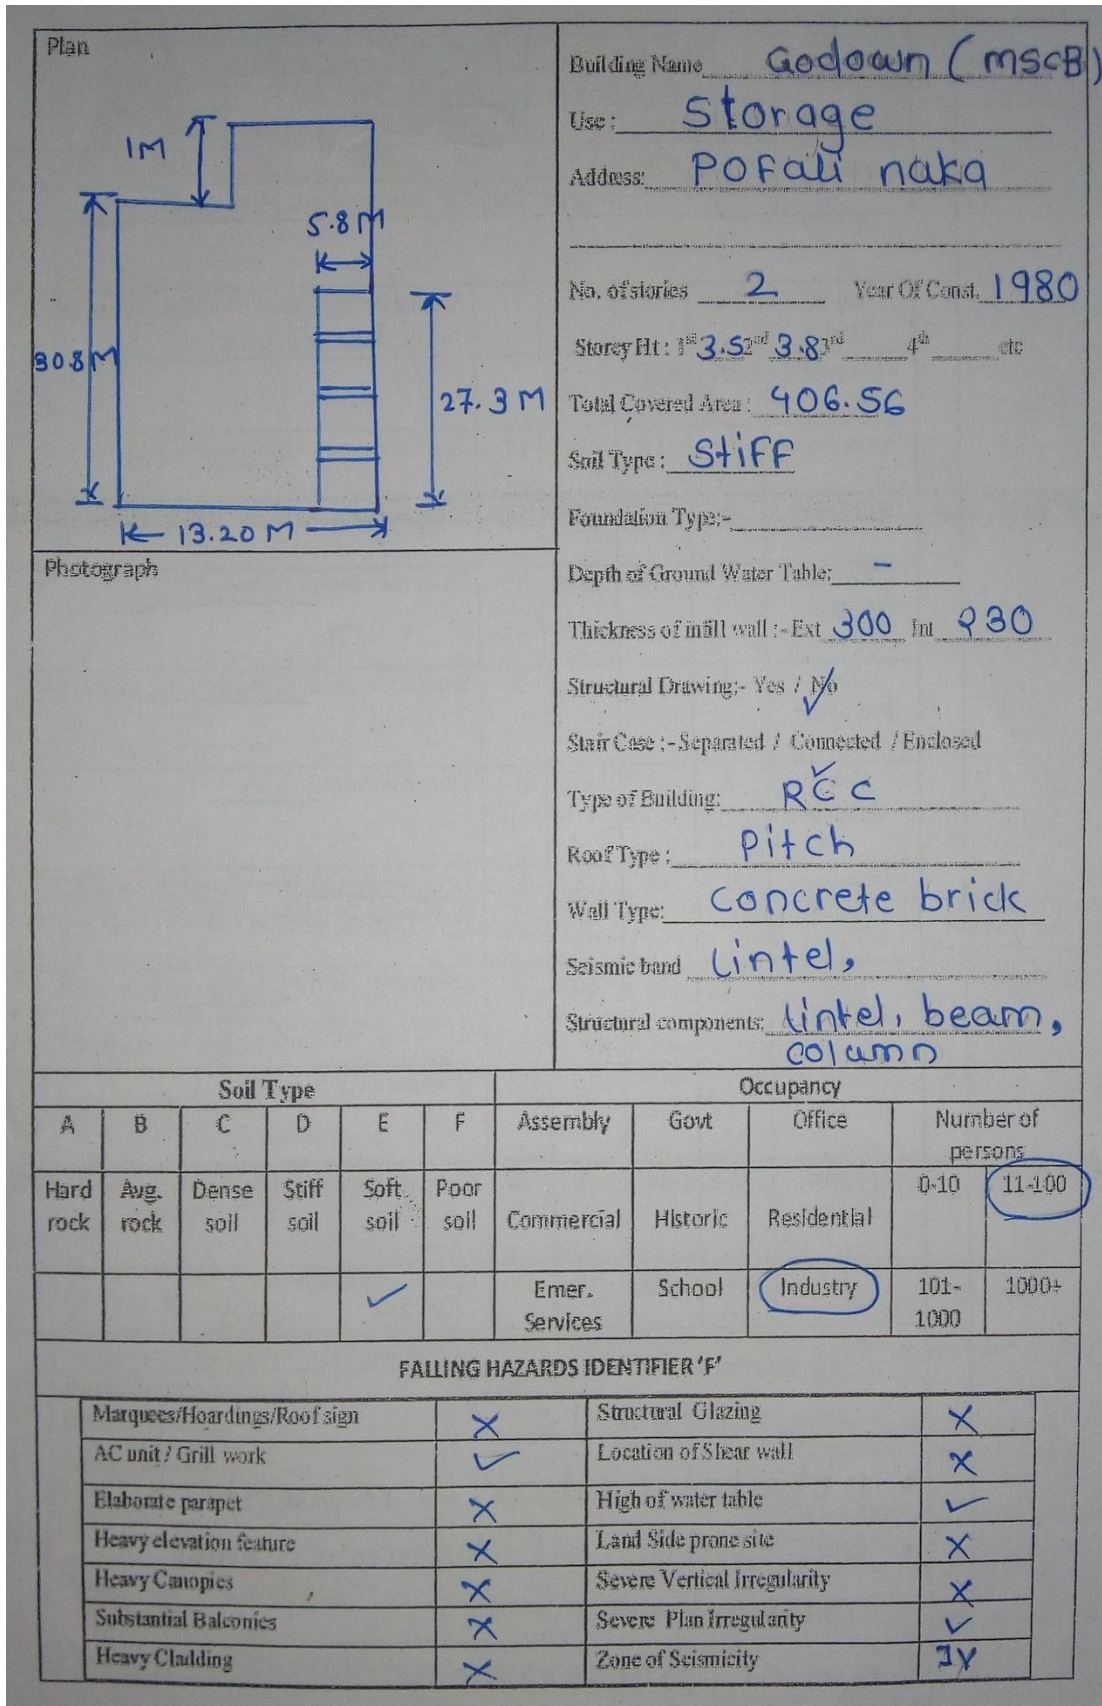 Plan
1M
5.8 M
30.8 M
27.3 M
13.20 M
Photograph
Building Name Godown (MSCB)
Use: Storage
Address: Pofali naka
No. of stories 2 Year Of Const. 1980
Storey Ht: 1st 3.5 2nd 3.8 3rd 4th etc
Total Covered Area: 406.56
Soil Type: Stiff
Foundation Type:-
Depth of Ground Water Table: -
Thickness of infill wall :- Ext 300 Int 230
Structural Drawing:- Yes / No ✓
Stair Case :- Separated / Connected / Enclosed
✓
Type of Building: RCC
Roof Type: Pitch
Wall Type: Concrete brick
Seismic band Lintel,
Structural components: Lintel, beam,
column
Soil Type Occupancy
A B C D E F Assembly Govt Office Number of persons
Hard rock Avg. rock Dense soil Stiff soil Soft soil Poor soil Commercial Historic Residential 0-10 11-100
✓ Emer. Services School Industry 101-1000 1000+
FALLING HAZARDS IDENTIFIER 'F'
Marquees/Hoardings/Roof sign X Structural Glazing X
AC unit / Grill work ✓ Location of Shear wall X
Elaborate parapet X High of water table ✓
Heavy elevation feature X Land Side prone site X
Heavy Canopies X Severe Vertical Irregularity X
Substantial Balconies X Severe Plan Irregularity ✓
Heavy Cladding X Zone of Seismicity IV